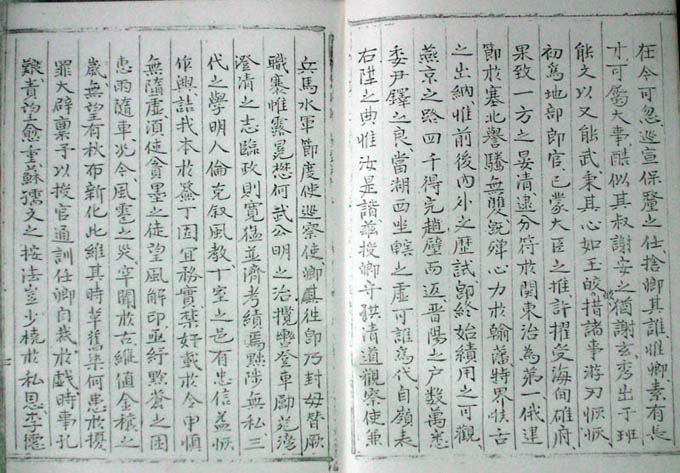 在令可忽巡宣保釐之任捨卿其誰惟卿素有長
才可當大事酷似其叔謝安之猶謝玄秀出于班
能文以又能武秉其心如玉皎措諸事游刃恢恢
初爲地部郎官已蒙大臣之推許擢受海甸雄府
果致一方之晏清逮分符於關東治爲第一俄建
節於塞北譽騰無雙銳殫心力於翰藩特界惟古
之出納惟前後內外之歷試卽終始績用之可觀
燕京之路四千得完趙璧而返晉陽之户數萬悉
委尹鐸之良當湖西坐轄之虛可誰爲代自嶺表
右陞之典惟汝是諧茲授卿守洪清道觀察使兼
兵馬水軍節度使巡察使卿其往卽乃封毋替厥
職褰帷露冕懋何武公明之治攬轡登車勵范滂
澄清之志臨政則寬猛並濟考績焉黜陟無私三
代之學明人倫克叙風教十室之邑有忠信益恢
作興詰我本於簽丁固宜務實奸戢於令甲愼
無隨虛須使貪墨之徒望風解印亟紓黔蒼之困
惠雨隨車况今風雹之災宰闕於古維値金穰之
歲無望有秋布新化此維其時革舊染何患於擾
罪大辟稟予以授官通訓任卿自裁於戲時事孔
艱責望愈重蘇孺文之按法豈少撓於私恩李德